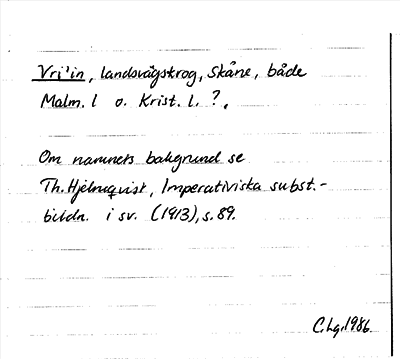 Vri'in, landsvägskrog, Skåne, både
Malm. l o. Krist. l. ?.
Om namnets bakgrund se
Th. Hjelmqvist, Imperativiska subst.-
bildn. i sv. (1913), s. 89.
C. Lg. 1986.